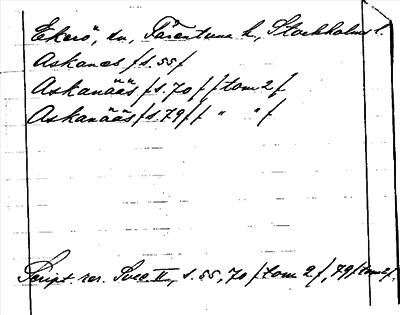 Ekerö, sn, Färentuna h., Stockholms l.
Askanæs /s. 55/
Askanääs /s. 70 f/ /tom 2/
Askanääs /s. 79 f/ / " " /
Script. rer. Svec. II, s. 55, 70 f /tom 2/, 79 f /tom 2/.